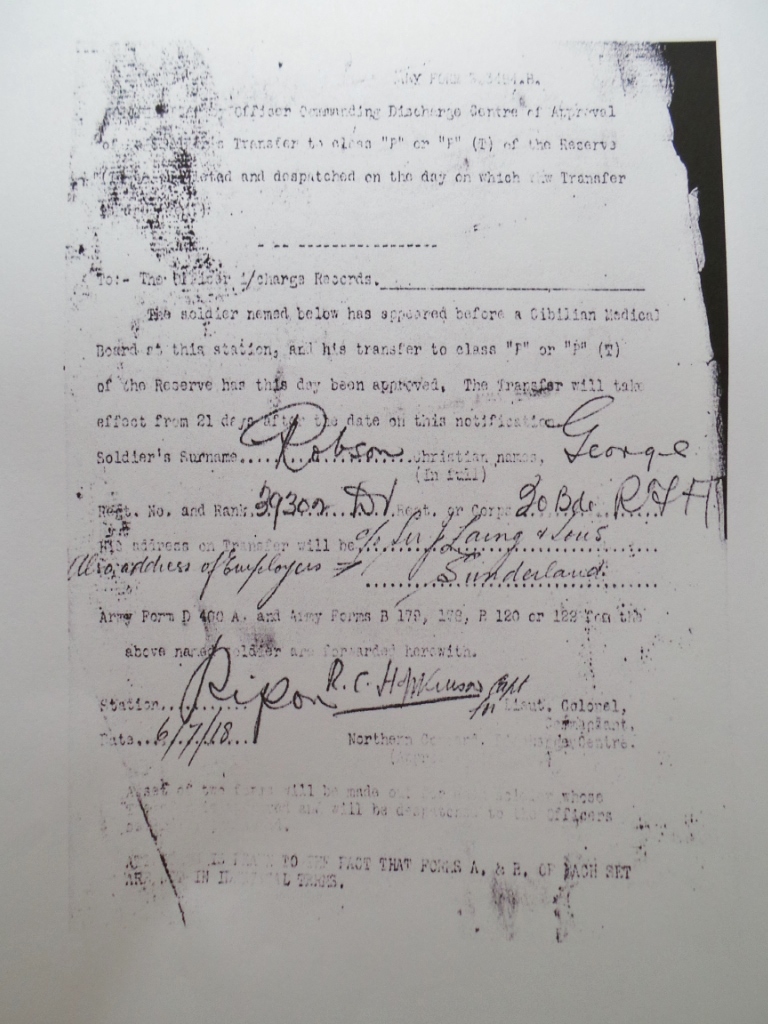 ARMY FORM
Officer Commanding Discharge Centre of Approval
of Transfer to class "P" or "P" (T) of the Reserve
and despatched on the day on which Transfer
To:- The Officer i/charge Records.
The soldier named below has appeared before a Cibilian Medical
Board at this station, and his transfer to class "P" or "P" (T)
of the Reserve has this day been approved. The Transfer will take
effect from 21 days after the date on this notification
Soldier's Surname Robson Christian names, George
(In full)
Regt. No. and Rank 39302 Dr Regt. or Corps 30 Bde R F A
His address on Transfer will be c/o Sir J Laing & Sons
Also address of Employers Sunderland.
Army Form D 400 A. and Army Forms B 179, 178, B 120 or 122 for the
above named soldier are forwarded herewith.
Station Ripon R. C. Hopkinson Capt
for Lieut. Colonel,
Date 6/7/18 Commandant.
Northern Command, Discharge Centre.
A set of two forms will be made out for each soldier whose
and will be despatched to the Officers
TO THE FACT THAT FORMS A. & B. OF EACH SET
ARE NOT IN IDENTICAL TERMS.